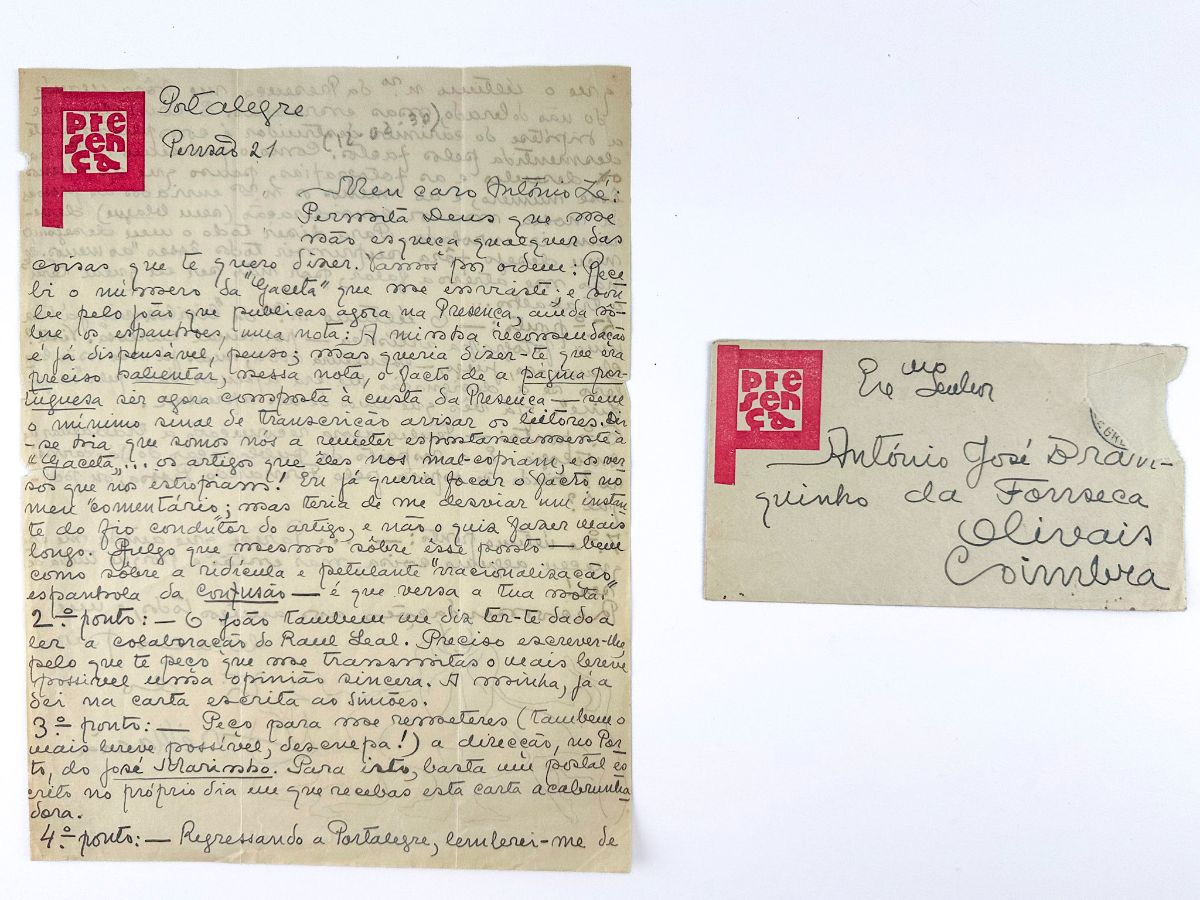 pre
sen
ça
Portalegre
Pensão 21
(12.04.30)
Meu caro António Zé:
Permita Deus que me
não esqueça qualquer das
coisas que te quero dizer. Vamos por ordem: Rece-
bi o número da "Gaceta" que me enviaste; e
lue pelo João que publicas agora na Presença, ainda sô-
bre os espanhoes, uma nota: A minha recomendação
é já dispensável, penso; mas queria dizer-te que era
preciso salientar, nessa nota, o facto de a página por-
tuguesa ser agora composta à custa da Presença — sem
o mínimo sinal de transcrição avisar os leitores. Dir-
se-hia que somos nós a remeter espontaneamente à
"Gaceta"... os artigos que êles nos mal-copiam, e os ver-
sos que nos estropiam! Eu já queria focar o facto no
meu "comentário"; mas teria de me desviar um instan-
te do fio condutor do artigo, e não o quis fazer mais
longo. Julgo que mesmo sôbre êsse ponto — bem
como sôbre a ridícula e petulante "racionalização"
espanhola da confusão — é que versa a tua nota.
2.º ponto: — O João também me diz ter-te dado a
ler a colaboração do Raul Leal. Preciso escrever-lhe,
pelo que te peço que me transmitas o mais breve
possivel uma opinião sincera. A minha, já a
dei na carta escrita ao Simões.
3.º ponto: — Peço para me remeteres (tambem o
mais breve possível, desculpa!) a direcção, no Por-
to, do José Marinho. Para isto, basta um postal es-
crito no próprio dia em que recebas esta carta acabrunha-
dora.
4.º ponto: — Regressando a Portalegre, lembrei-me de
pre
sen
ça
Exmo Senhor
António José Bran-
quinho da Fonseca
Olivais
Coimbra